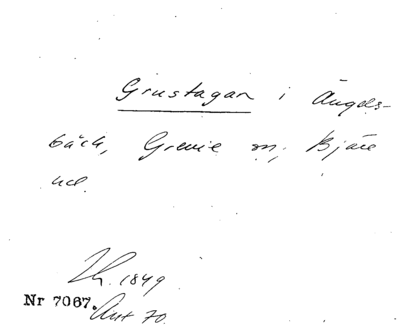 Grustagan i Ängels-
bäck, Grevie sn, Bjäre
hd.
Th. 1849
Nr 7067.
Ant 70